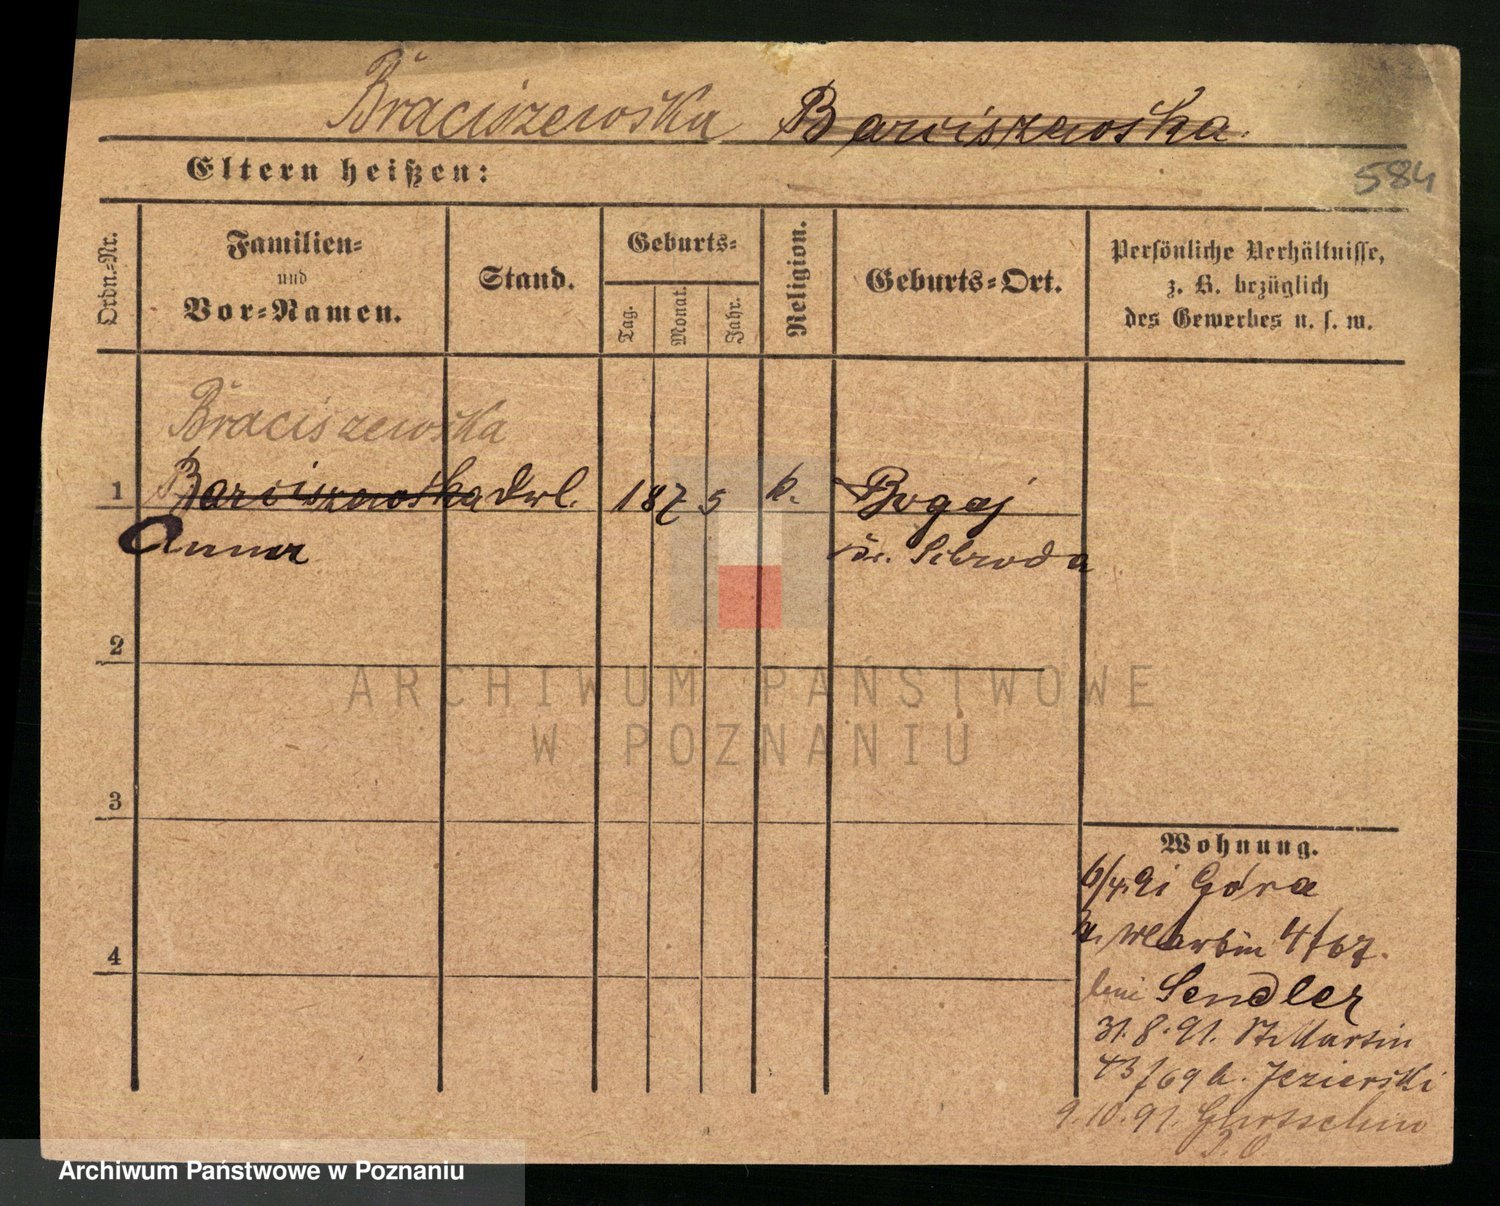 Braciszewska Barciszewska.
Eltern heißen:
584
Ordn.-Nr.
Familien-
und
Vor-Namen.
Stand.
Geburts-
Tag.
Monat.
Jahr.
Religion.
Geburts-Ort.
Persönliche Verhältnisse,
z. B. bezüglich
des Gewerbes u. s. w.
Braciszewska
1 Barciszewska 1875 k. Bogaj
Anna Schroda
2
3
4
Wohnung.
6/4. 91 Góra
St. Martin 4/67.
bei Sendler
31. 8. 91. St Martin
43/69 b. Jezierski
9. 10. 91. Gurtschin
ARCHIWUM PAŃSTWOWE
W POZNANIU
Archiwum Państwowe w Poznaniu